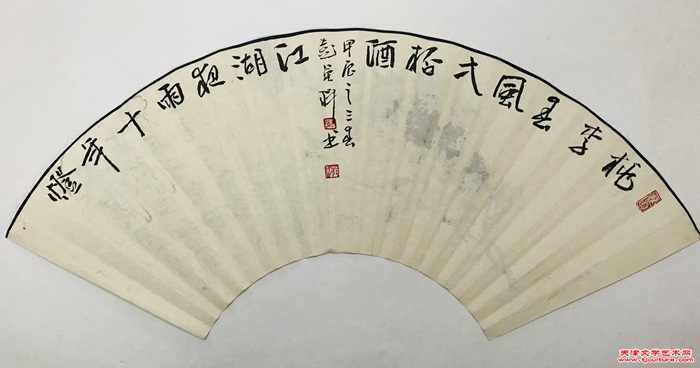 桃李春風弌杯酒
江湖夜雨十年燈
甲辰之三春
彭英科書
天津文学艺术网
www.tjculture.com